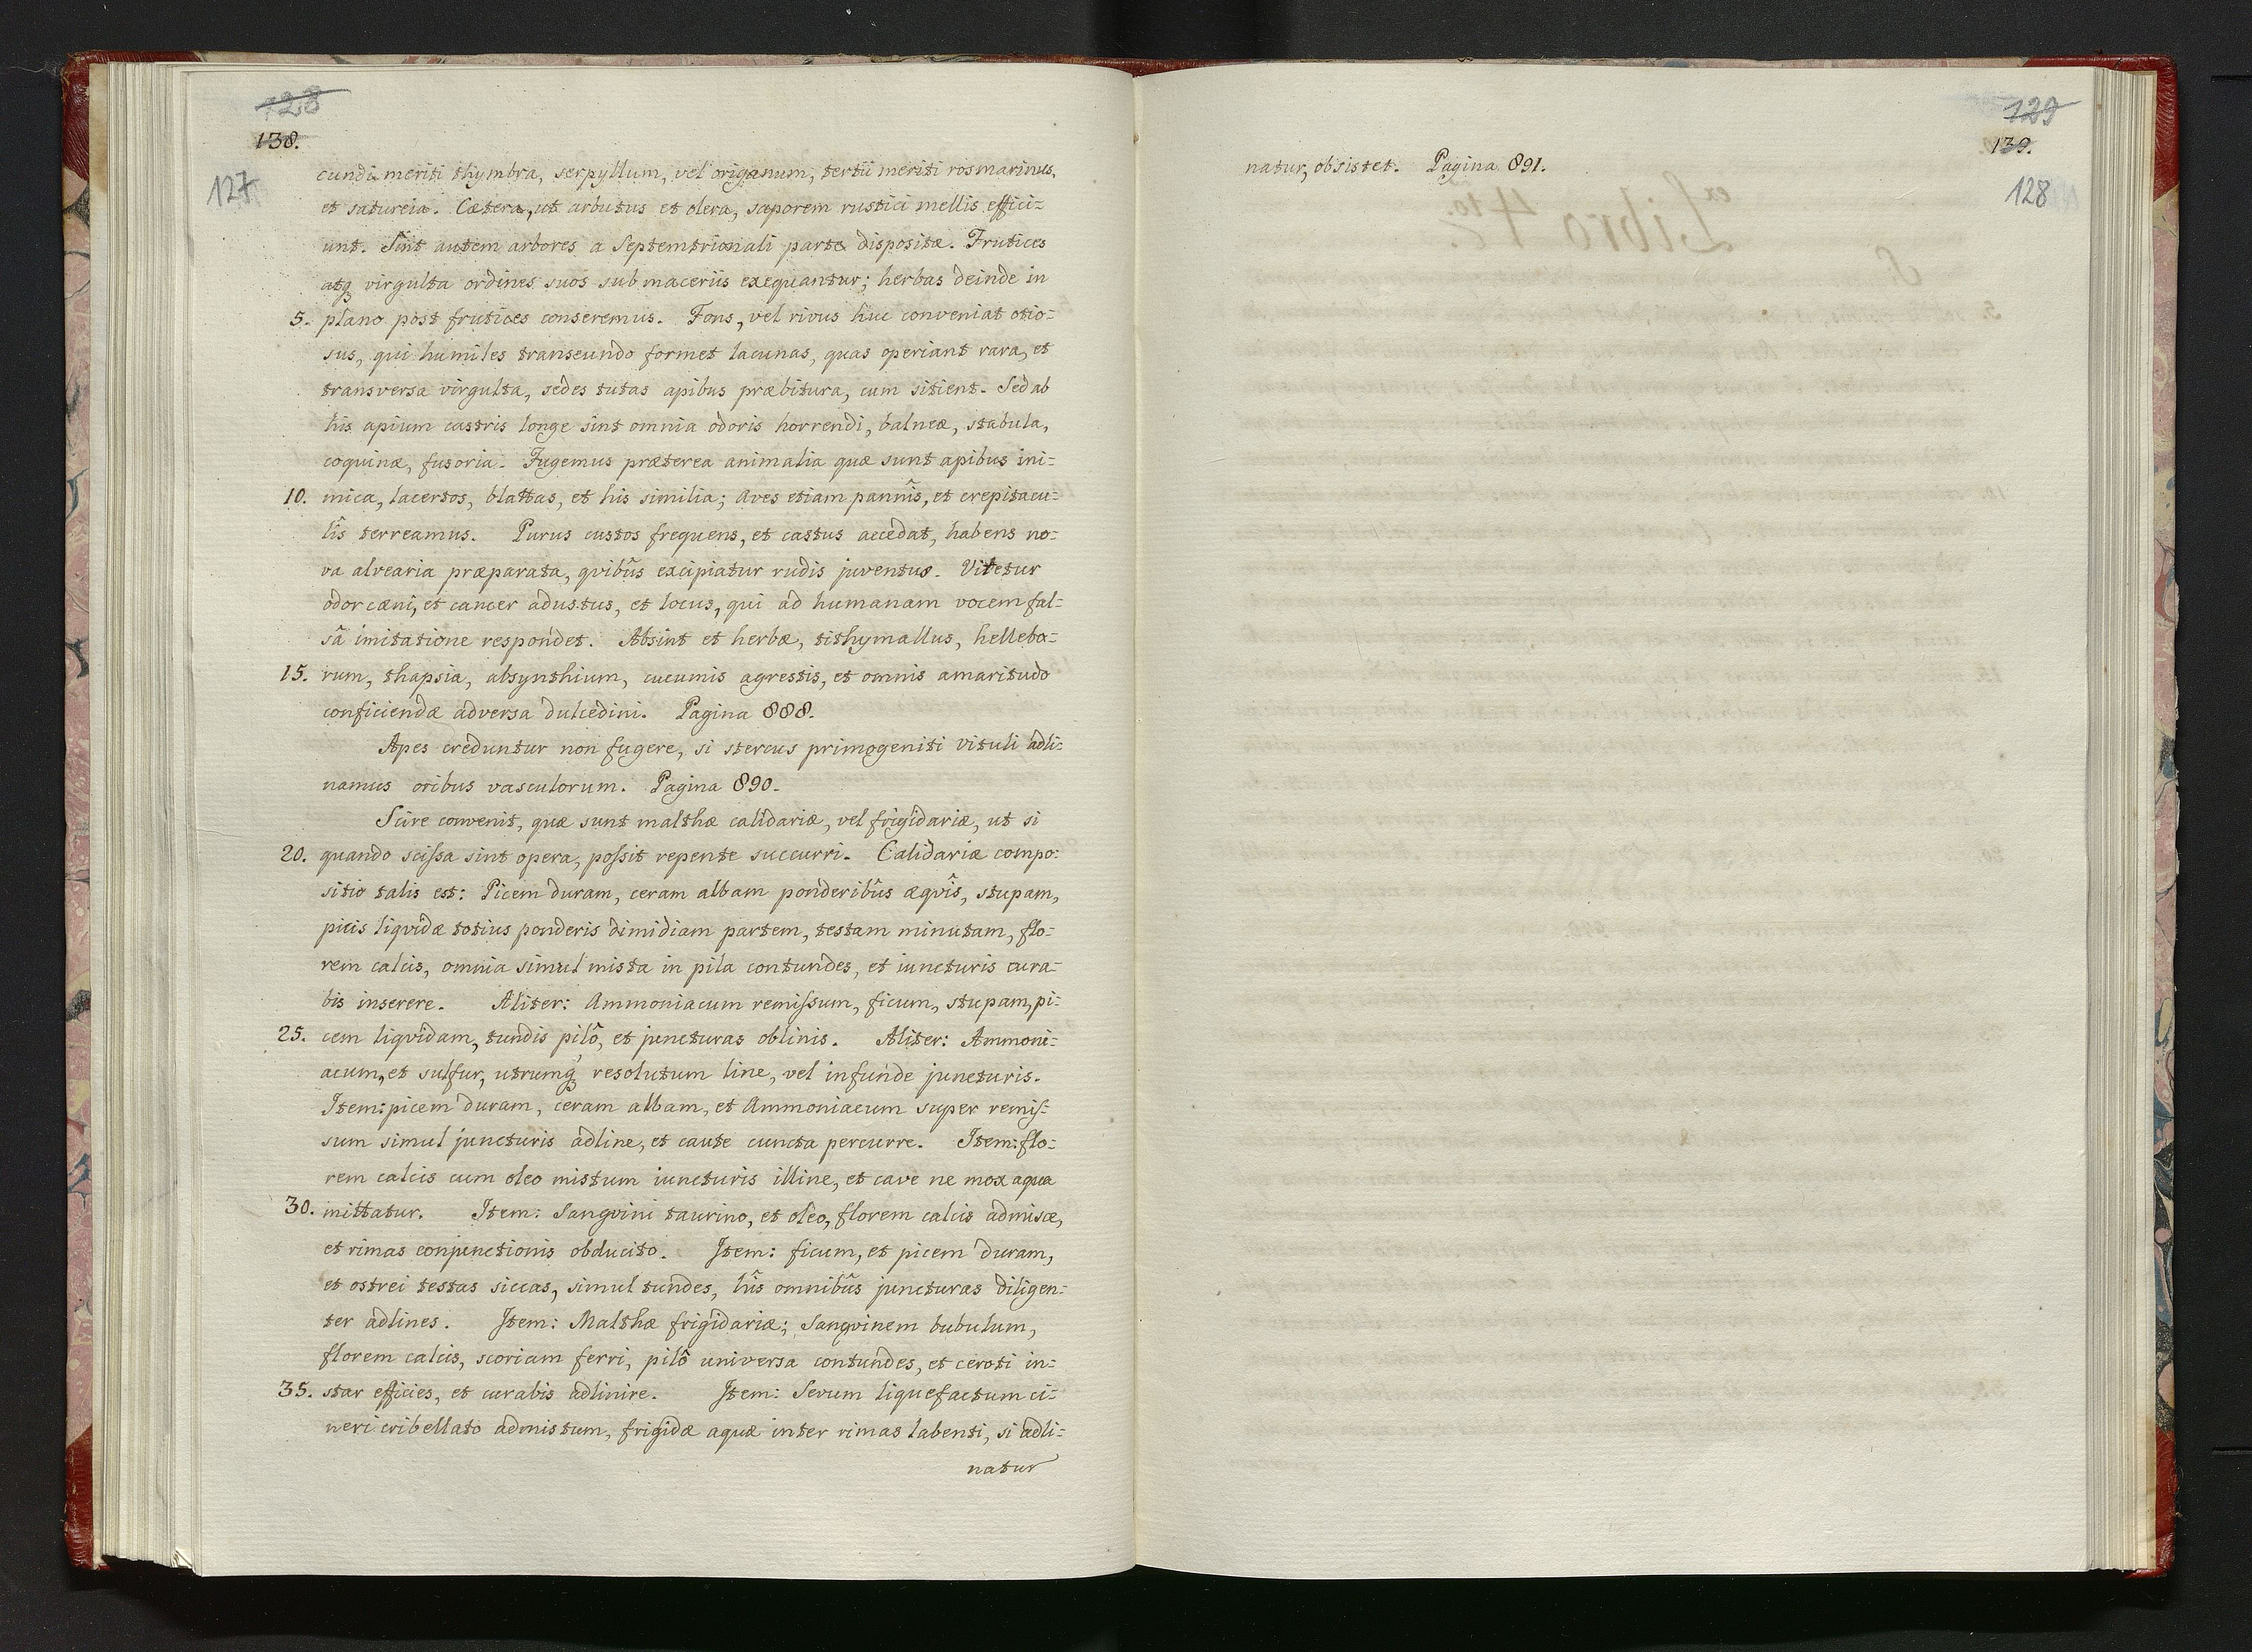 128
138.
127
cundi meriti thymbra, serpyllum, vel origanum, tertii meriti rosmarinus,
et satureia. Cætera, ut arbutus et olera, saporem rustici mellis effici=
unt. Sint autem arbores a Septemtrionali parte dispositæ. Frutices
atq virgulta ordines suos sub maceriis exequantur; herbas deinde in
5. plano post frutices conseremus. Fons, vel rivus huc conveniat otio=
sus, qui humiles transeundo formet lacunas, quas operiant rara, et
transversa virgulta, sedes tutas apibus præbitura, cum sitient. Sed ab
his apium castris longe sint omnia odoris horrendi, balneæ, stabula,
coquinæ, fusoria. Fugemus præterea animalia quæ sunt apibus ini=
10. mica, lacertos, blattas, et his similia; Aves etiam pannîs, et crepitacu=
lîs terreamus. Purus custos frequens, et castus accedat, habens no=
va alvearia præparata, qvibûs excipiatur rudis juventus. Vitetur
odor cæni, et cancer adustus, et locus, qui ad humanam vocem fal=
sâ imitatione respondet. Absint et herbæ, tithymallus, hellebo=
15. rum, thapsia, absynthium, cucumis agrestis, et omnis amaritudo
conficiendæ adversa dulcedini. Pagina 888.
Apes creduntur non fugere, si stercus primogeniti vituli adli=
namus oribus vasculorum. Pagina 890.
Scire convenit, quæ sunt malthæ calidariæ, vel frigidariæ, ut si
20. quando scissa sint opera, possit repente succurri. Calidariæ compo=
sitio talis est: Picem duram, ceram albam ponderibûs æqvîs, stupam,
picis liqvidæ totius ponderis dimidiam partem, testam minutam, flo=
rem calcis, omnia simul mista in pila contundes, et iuncturis cura=
bis inserere. Aliter: Ammoniacum remissum, ficum, stupam, pi=
25. cem liqvidam, tundis pilô, et juncturas oblinis. Aliter: Ammoni=
acum, et sulfur, utrumq resolutum line, vel infunde juncturis.
Item: picem duram, ceram albam, et Ammoniacum super remis=
sum simul juncturis adline, et caute cuncta percurre. Item: flo=
rem calcis cum oleo mistum iuncturis illine, et cave ne mox aqua
30. mittatur. Item: Sangvini taurino, et oleo, florem calcis admisce,
et rimas conjunctionis obducito. Item: ficum, et picem duram,
et ostrei testas siccas, simul tundes, hîs omnibûs juncturas diligen=
ter adlines. Item: Malthæ frigidariæ; Sangvinem bubulum,
florem calcis, scoriam ferri, pilô universa contundes, et ceroti in=
35. star efficies, et curabis adlinire. Item: Sevum liquefactum ci=
neri cribellato admistum, frigidæ aquæ inter rimas labenti, si adli=
natur
129
139.
128
natur, obsistet. Pagina 891.